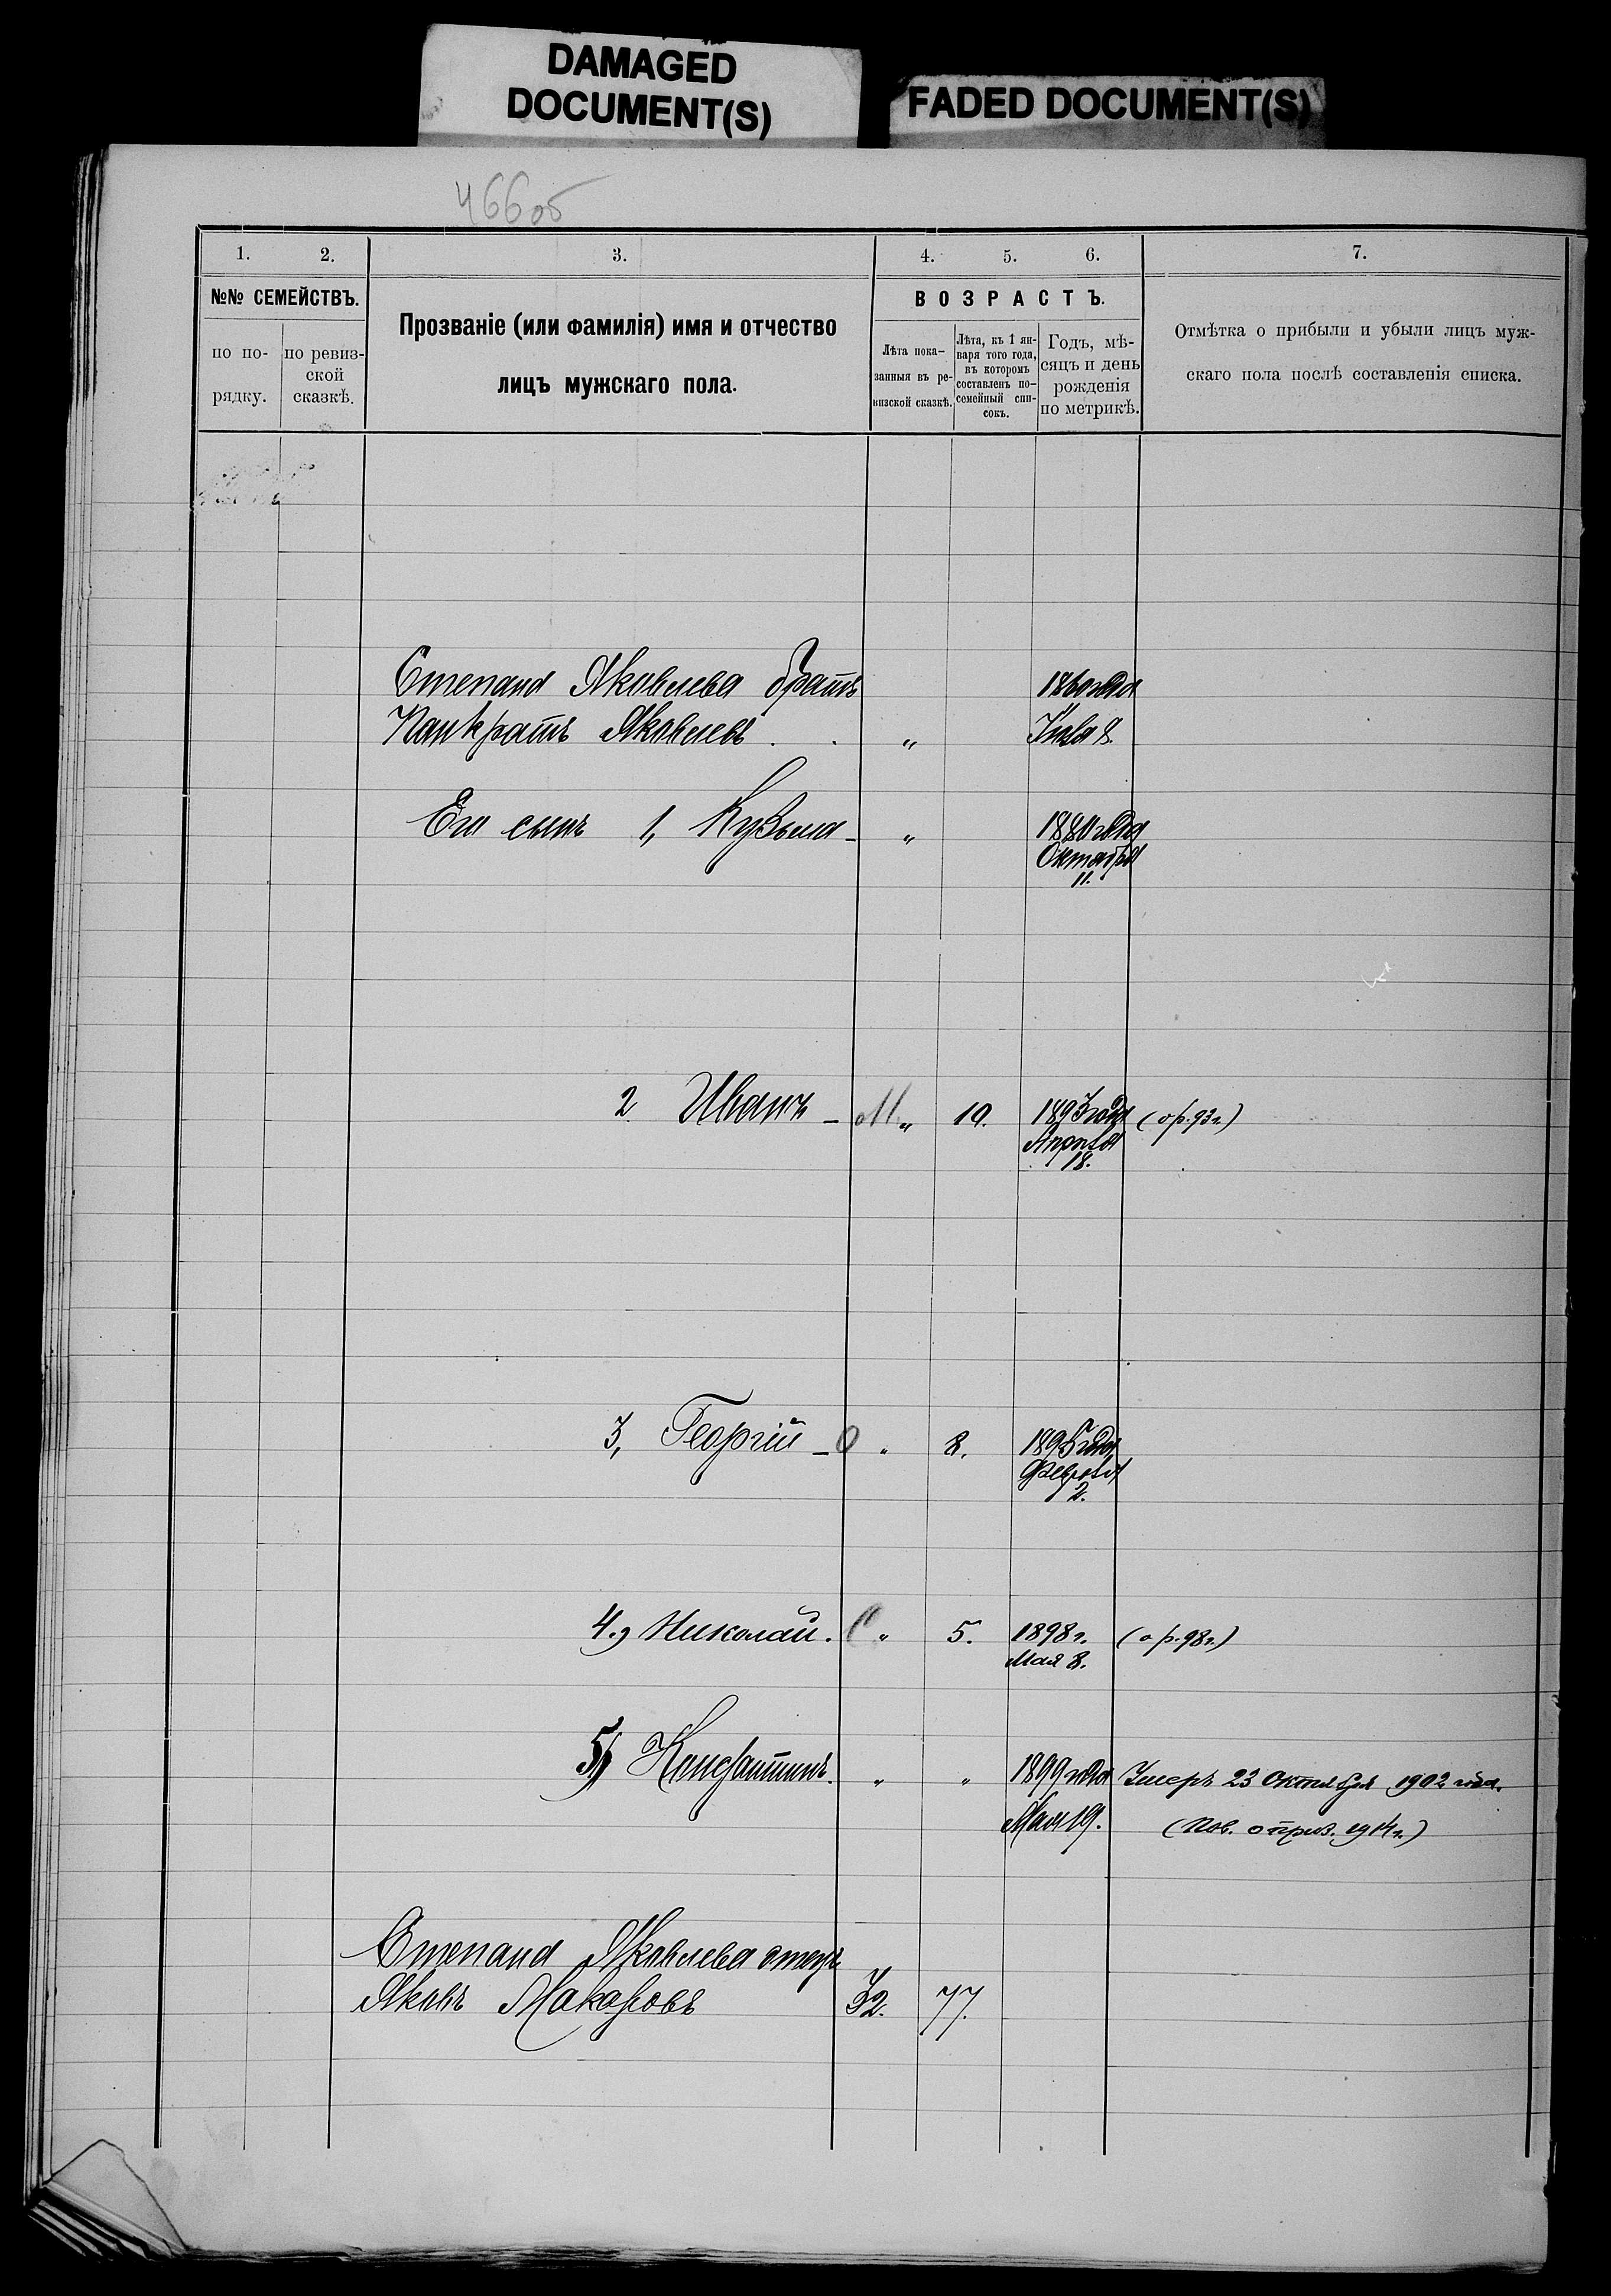 DAMAGED
DOCUMENT(S)
FADED DOCUMENT(S)
466об
1. 2. 3. 4. 5. 6. 7.
№№ СЕМЕЙСТВЪ.
по по-
рядку.
по ревиз-
ской
сказкѣ.
Прозваніе (или фамилія) имя и отчество
лицъ мужскаго пола.
ВОЗРАСТЪ.
Лѣта пока-
занныя въ ре-
визской сказкѣ.
Лѣта, къ 1 ян-
варя того года,
въ которомъ
составленъ по-
семейный спи-
сокъ.
Годъ, мѣ-
сяцъ и день
рожденія
по метрикѣ.
Отмѣтка о прибыли и убыли лицъ муж-
скаго пола послѣ составленія списка.
Степана Яковлева братъ 1860 года
Панкратъ Яковлевъ . . „ Іюля 8.
Его сынъ 1, Кузьма - „ 1880 года
Октября
11.
2 Иванъ - М „ 10. 1893 года (о р. 93 г.)
Апрѣля
18.
3, Георгій - О „ 8. 1895 года
Февраля
2.
4., Николай. С „ 5. 1898 г. (о р. 98 г.)
Мая 8.
5) Константинъ. „ „ 1899 года Умеръ 23 Октября 1902 года.
Мая 19. (Пов. о приз. 1914 г.)
Степана Яковлева отецъ
Яковъ Макаровъ 32. 77.